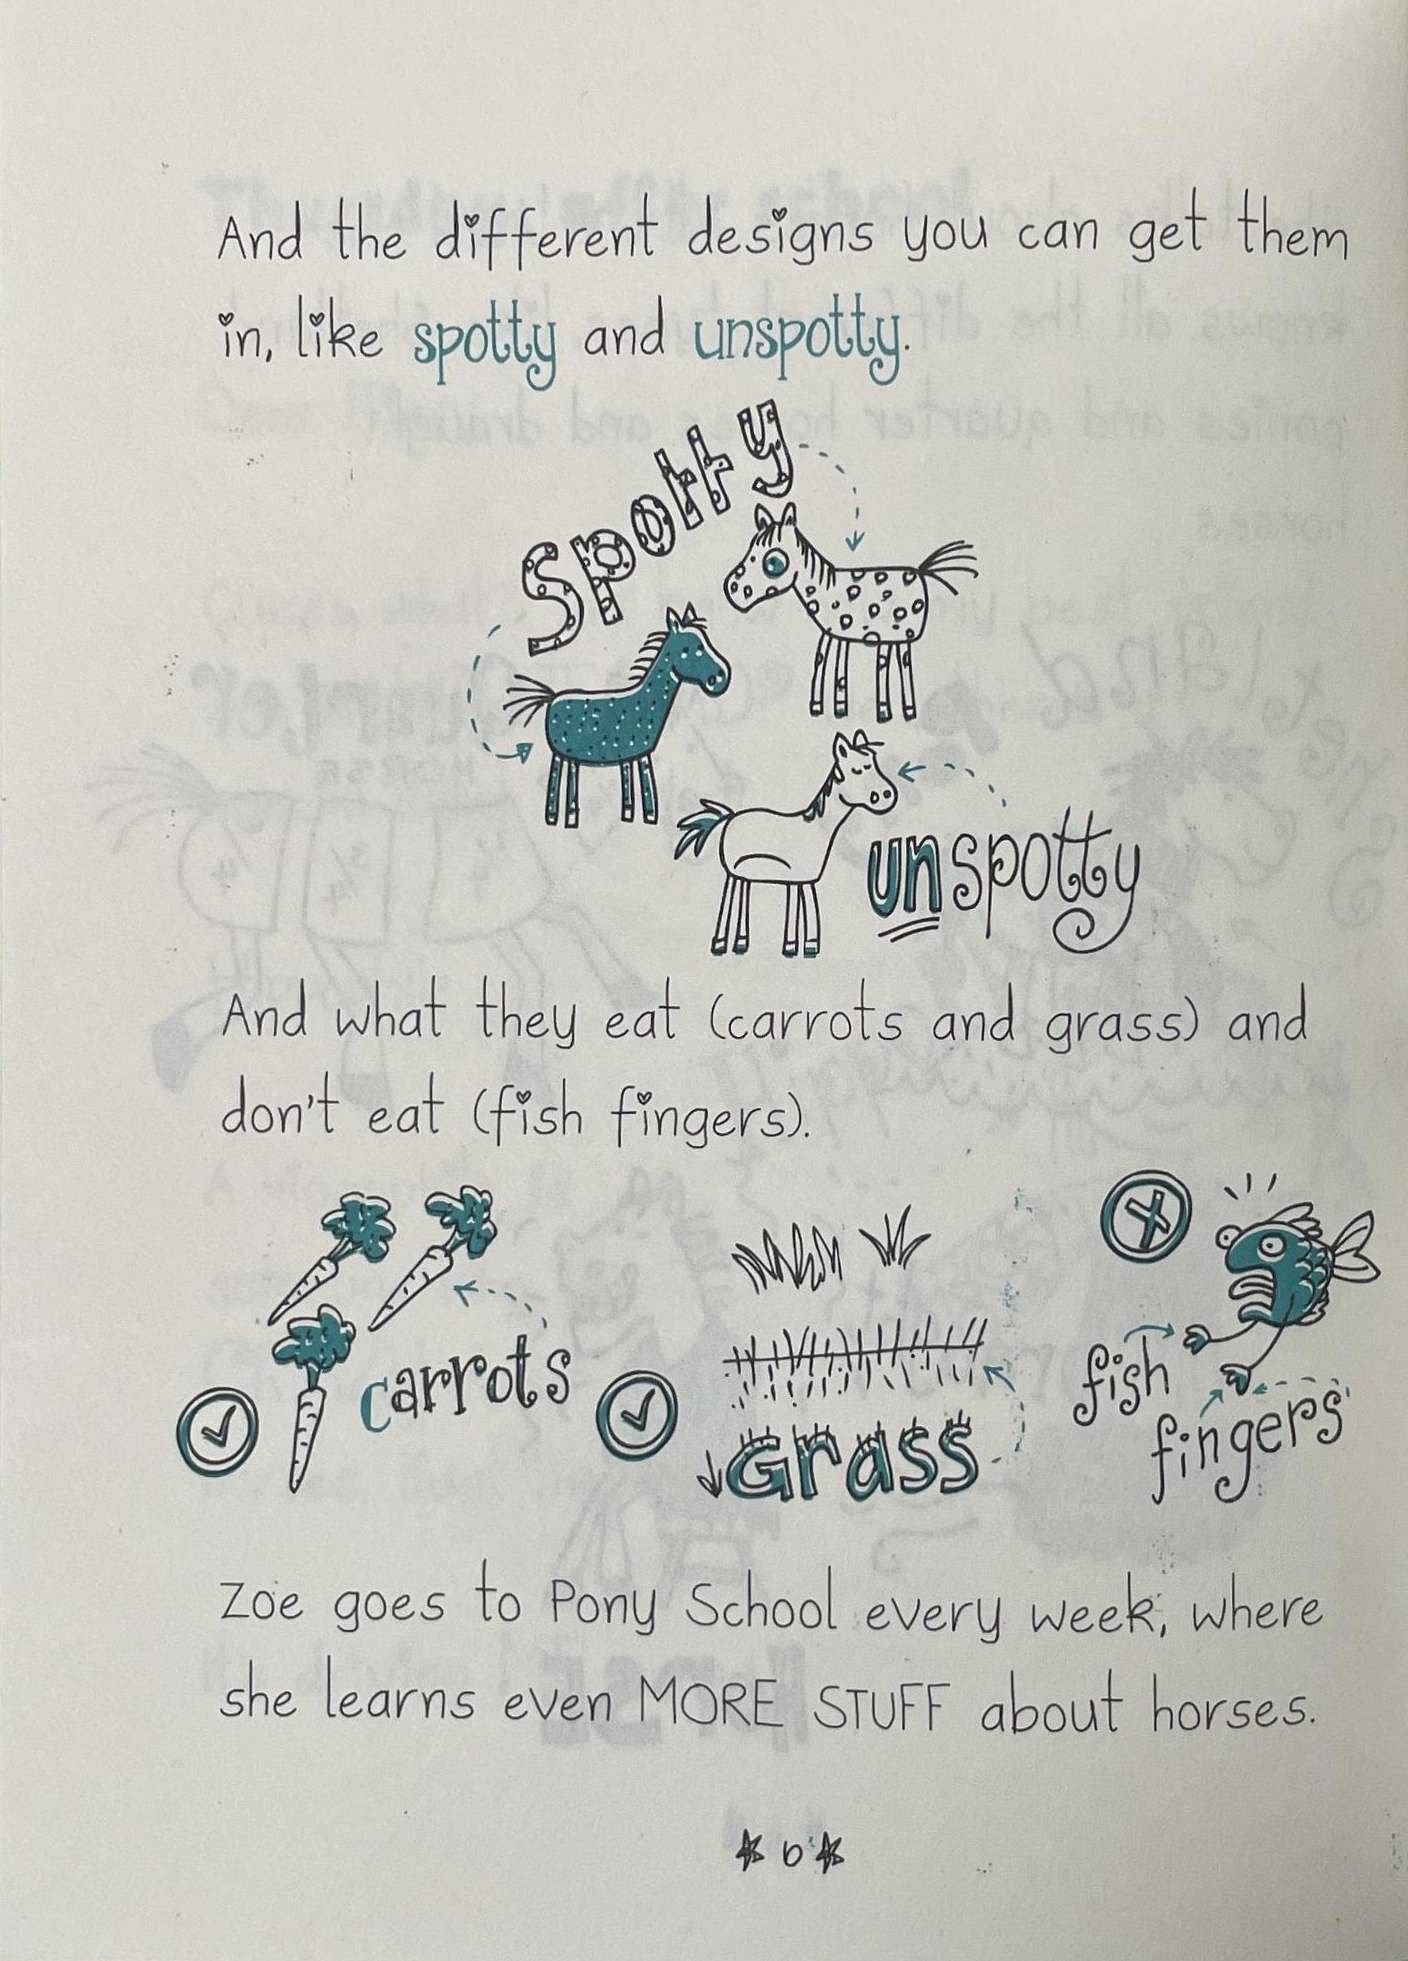 And the different designs you can get them
in, like spotty and unspotty.
Spotty
unspotty
And what they eat (carrots and grass) and
don't eat (fish fingers).
carrots
Grass
fish
fingers
Zoe goes to Pony School every week, where
she learns even MORE STUFF about horses.
6